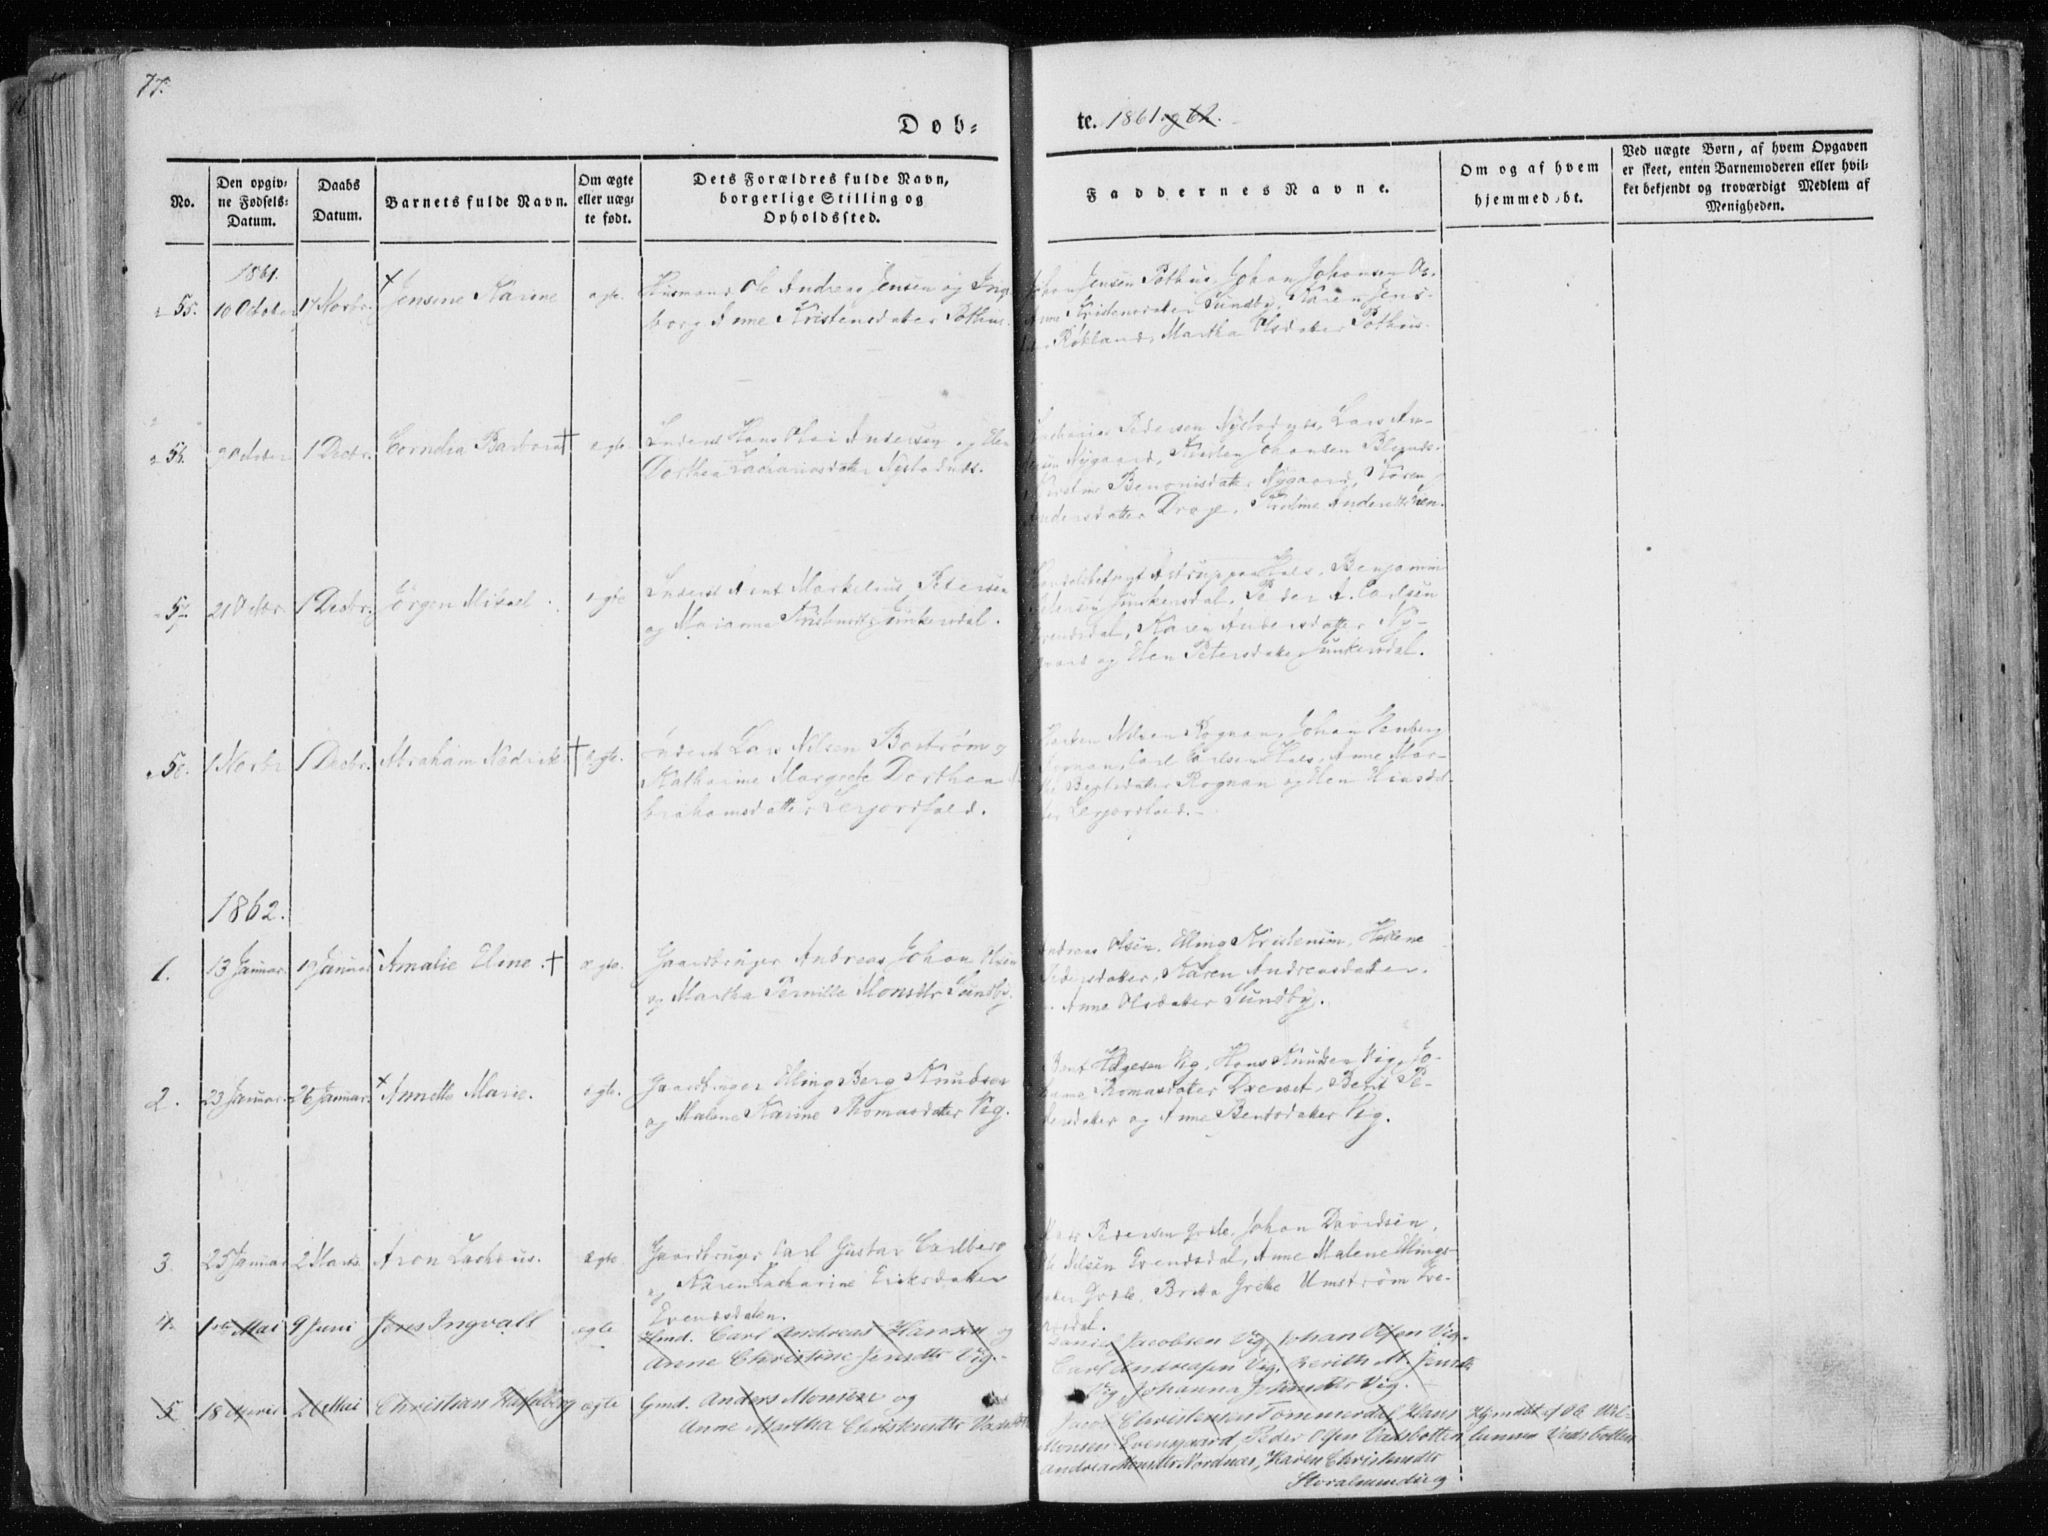 77.
Døb-
te. 1861 og 62.
No.
Den opgiv-
ne Fødsels-
Datum.
Daabs
Datum.
Barnets fulde Navn.
Om ægte
eller uæg-
te født.
Dets Forældres fulde Navn,
borgerlige Stilling og
Opholdssted.
Faddernes Navne.
Om og af hvem
hjemmedøbt.
Ved uægte Børn, af hvem Opgaven
er skeet, enten Barnemoderen eller hvil-
ket bekjendt og troværdigt Medlem af
Menigheden.
1861.
55. 10 October 17 Novbr. Jensine Karine ægte. Husmand Ole Andreas Jensen og Ing-
borg Anne Kristensdatter Pothus.
Johan Jensen Pothus, Johan Johansen
Anne Kristensdatter Sundby, Karen Jens-
Røkland, Martha Olsdatter Pothus.
56. 9 October 1 Decbr. Cornelia Barbora † ægte. Inderst Hans Olai Andersen og Elen
Dorthea Zachariasdatter Nystadnæs.
Zacharias Pedersen Nystadnæs, Lars An-
Nygaard, Kristen Johansen
Kirstine Benonisdatter Nygaard, Karen
Andersdatter Drage,
57. 21 Octbr. 1 Decbr. Jørgen Mikael. ægte Inderst Arnt Markelius Petersen
og Marianna Junkersdal.
Astrup paa Hals, Benjamin
Petersen Junkersdal, Peder A. Carlsen
Evendsdal, Karen Andersdatter Ny-
gaard og Elen Petersdatter Junkersdal.
58. 1 Novbr 1 Decbr. Abraham Kedrik † ægte. Inderst Lars Nilsen Bostrøm og
Katharine Margrete Dorthea A-
brahamsdatter Leyjordfald.
Morten Nilsen Rognan, Johan
Rognan, Carl Carlsen Hals, Anne Mar-
Rognan og Elen
Leyjordfald.
1862.
1. 13 Januar. 19 Januar Amalie Eline. † ægte. Gaardbruger Andreas Johan Olsen
og Martha Pernille Monsdtr Sundby.
Andreas Olsen, Elling Kristensen, Hellene
Pedersdatter, Karen Andreasdatter
Anne Olsdatter Sundby.
2. 23 Januar. 26 Januar. Annette Marie. ægte. Gaardbruger Elling Berg Knudsen
og Malene Karine Thomasdatter Vig.
Bent Helgesen Vig, Hans Knudsen Vig, Jo-
hanna Thomasdatter Drevset, Berit Pe-
dersdatter og Anne Bentsdatter Vig.
3. 25 Januar 2 Marts. Aron Zachæus. ægte. Gaardbruger Carl Gustav Carlberg
og Karen Zacharine Eriksdatter
Evendsdalen.
Pedersen Græle, Johan Davidsen,
Ole Nilsen Evendsdal, Anne Malene Ellings-
datter Græle, Britta Grethe Umstrøm Eve-
nsdal.
4. 1 Mai 9 Juni Jens Ingvall ægte Hmd. Carl Andreas Hansen og
Anne Christine Jensdtr Vig.
Daniel Jacobsen Vig, Johan Olsen Vig.
Carl Andreasen Vig, Berith M. Jensdtr
Vig, Johanna Johnsdtr Vig.
5 18 April 26 Mai Christian Hasselberg ægte Gmd. Anders Monsen og
Anne Martha Christensdtr Vadsbotten
Jacob Christensen Tømmerdal, Hans
Monsen Evensgaard, Peder Olsen Vadsbotten
Andrea Monsdtr Nordnæs, Karen Christensdtr
Storalmending
Hjmdøbt af Ole Wil-
lumsen Vadsbotten